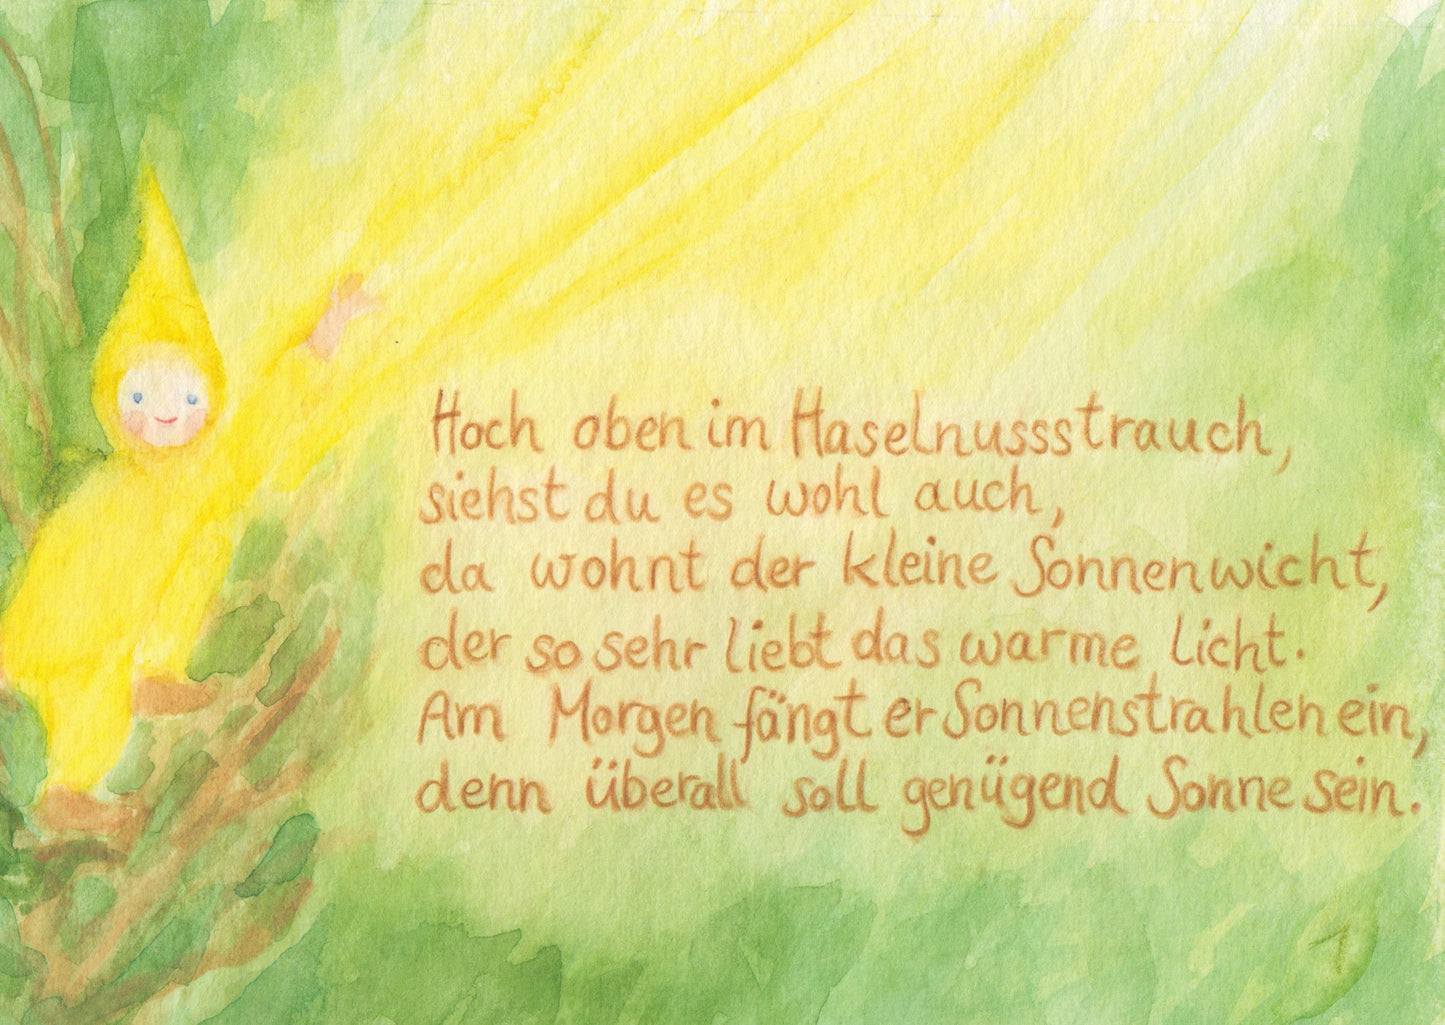 Hoch oben im Haselnussstrauch,
siehst du es wohl auch,
da wohnt der kleine Sonnenwicht,
der so sehr liebt das warme Licht.
Am Morgen fängt er Sonnenstrahlen ein,
denn überall soll genügend Sonne sein.
1